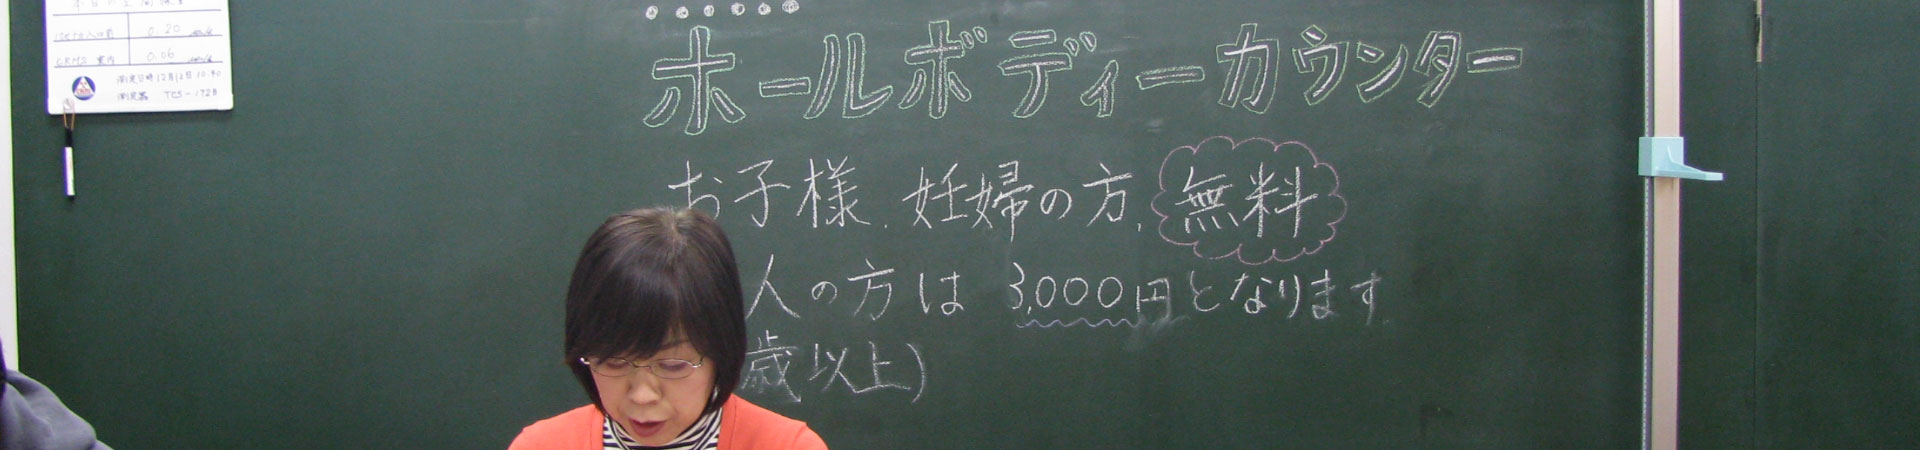 本日の空間線量
0.20
CRMS 案内 0.06
測定日時 12月12日 10:40
測定器 TCS-172B
ホールボディーカウンター
お子様、妊婦の方、無料
人の方は 3,000円となります
歳以上)